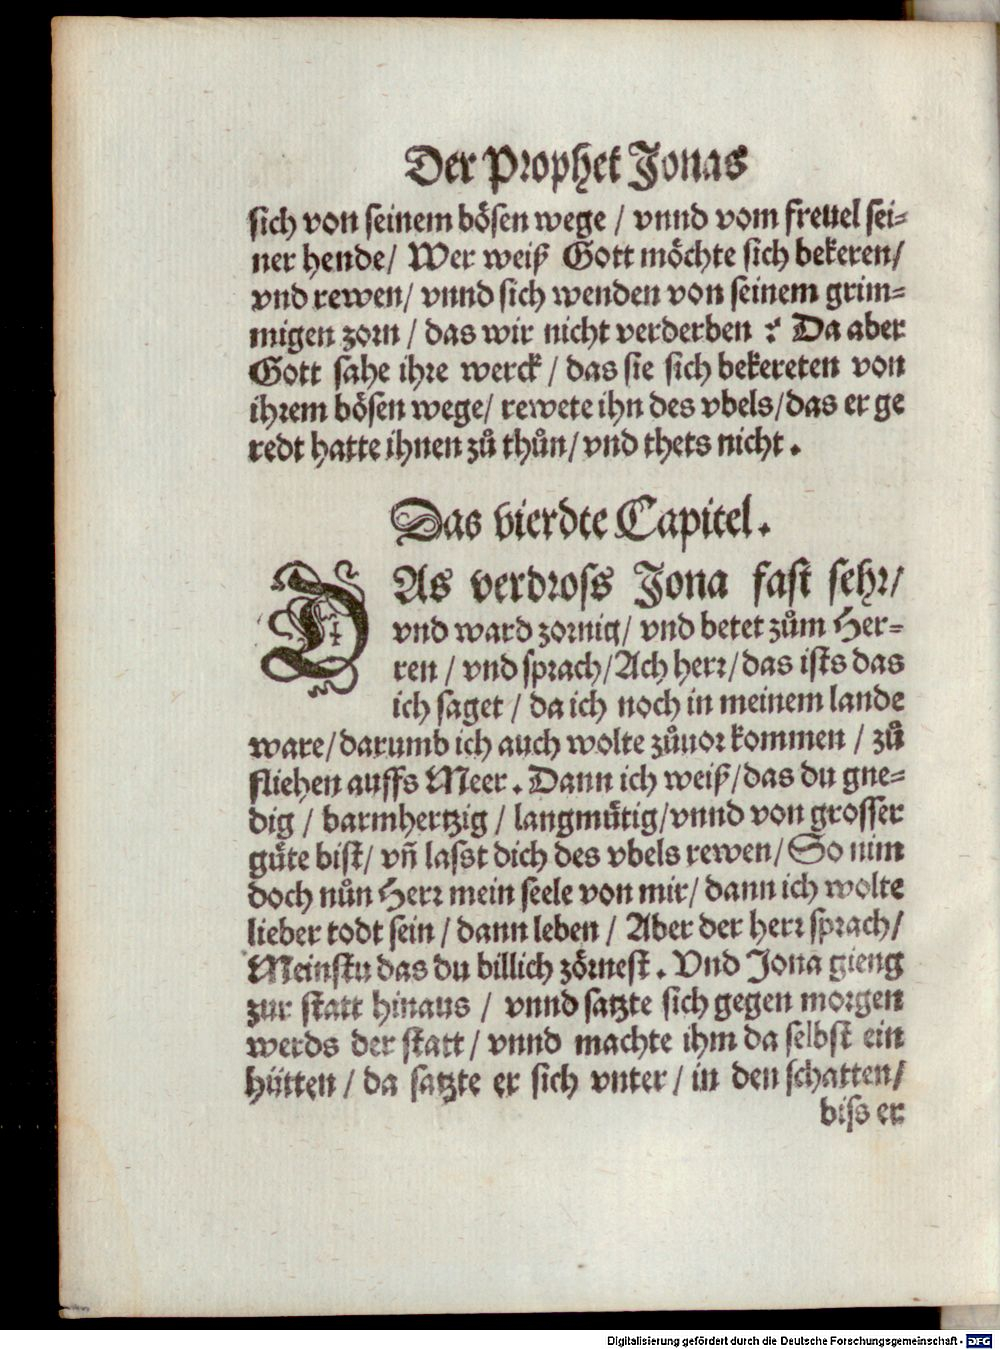 Der Prophet Jonas
sich von seinem bösen wege / vnnd vom freuel sei=
ner hende / Wer weiß Gott möchte sich bekeren /
vnd rewen / vnnd sich wenden von seinem grim=
migen zorn / das wir nicht verderben ? Da aber
Gott sahe ihre werck / das sie sich bekereten von
ihrem bösen wege / rewete ihn des vbels / das er ge
redt hatte ihnen zů thůn / vnd thets nicht .
Das vierdte Capitel .
DAs verdross Jona fast sehr /
vnd ward zornig / vnd betet zům Her=
ren / vnd sprach / Ach herr / das ists das
ich saget / da ich noch in meinem lande
ware / darumb ich auch wolte zůuor kommen / zů
fliehen auffs Meer . Dann ich weiß / das du gne=
dig / barmhertzig / langmütig / vnnd von grosser
güte bist / vñ lasst dich des vbels rewen / So nim
doch nůn Herr mein seele von mir / dann ich wolte
lieber todt sein / dann leben / Aber der herr sprach /
Meinstu das du billich zörnest . Vnd Jona gieng
zur statt hinaus / vnnd satzte sich gegen morgen
werds der statt / vnnd machte ihm da selbst ein
hütten / da satzte er sich vnter / in den schatten /
biss er
Digitalisierung gefördert durch die Deutsche Forschungsgemeinschaft - DFG